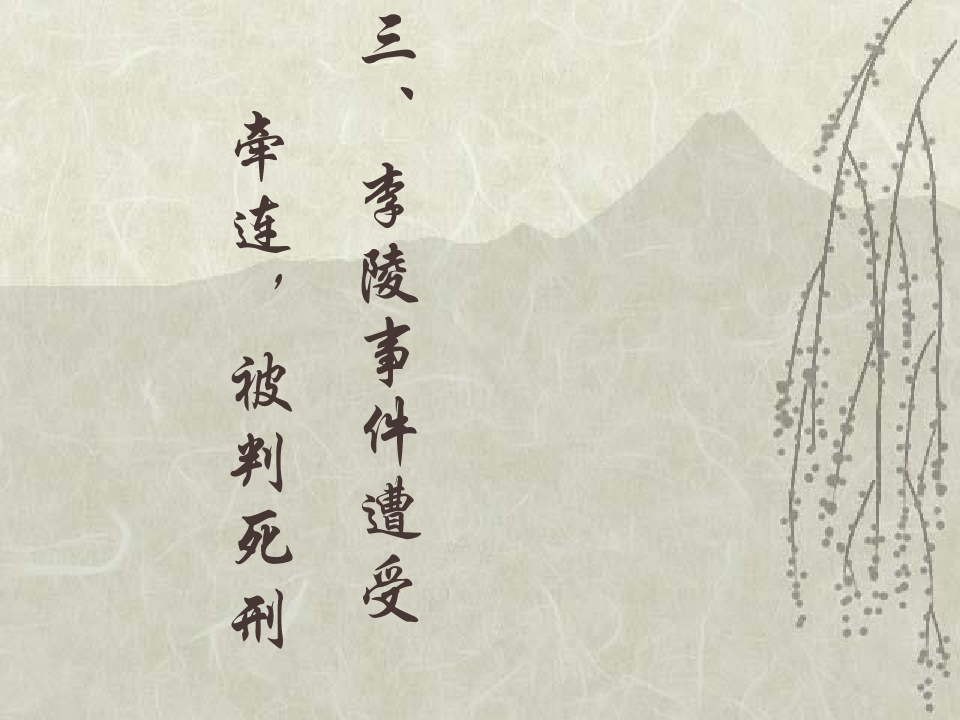 三、李陵事件遭受
牵连，被判死刑